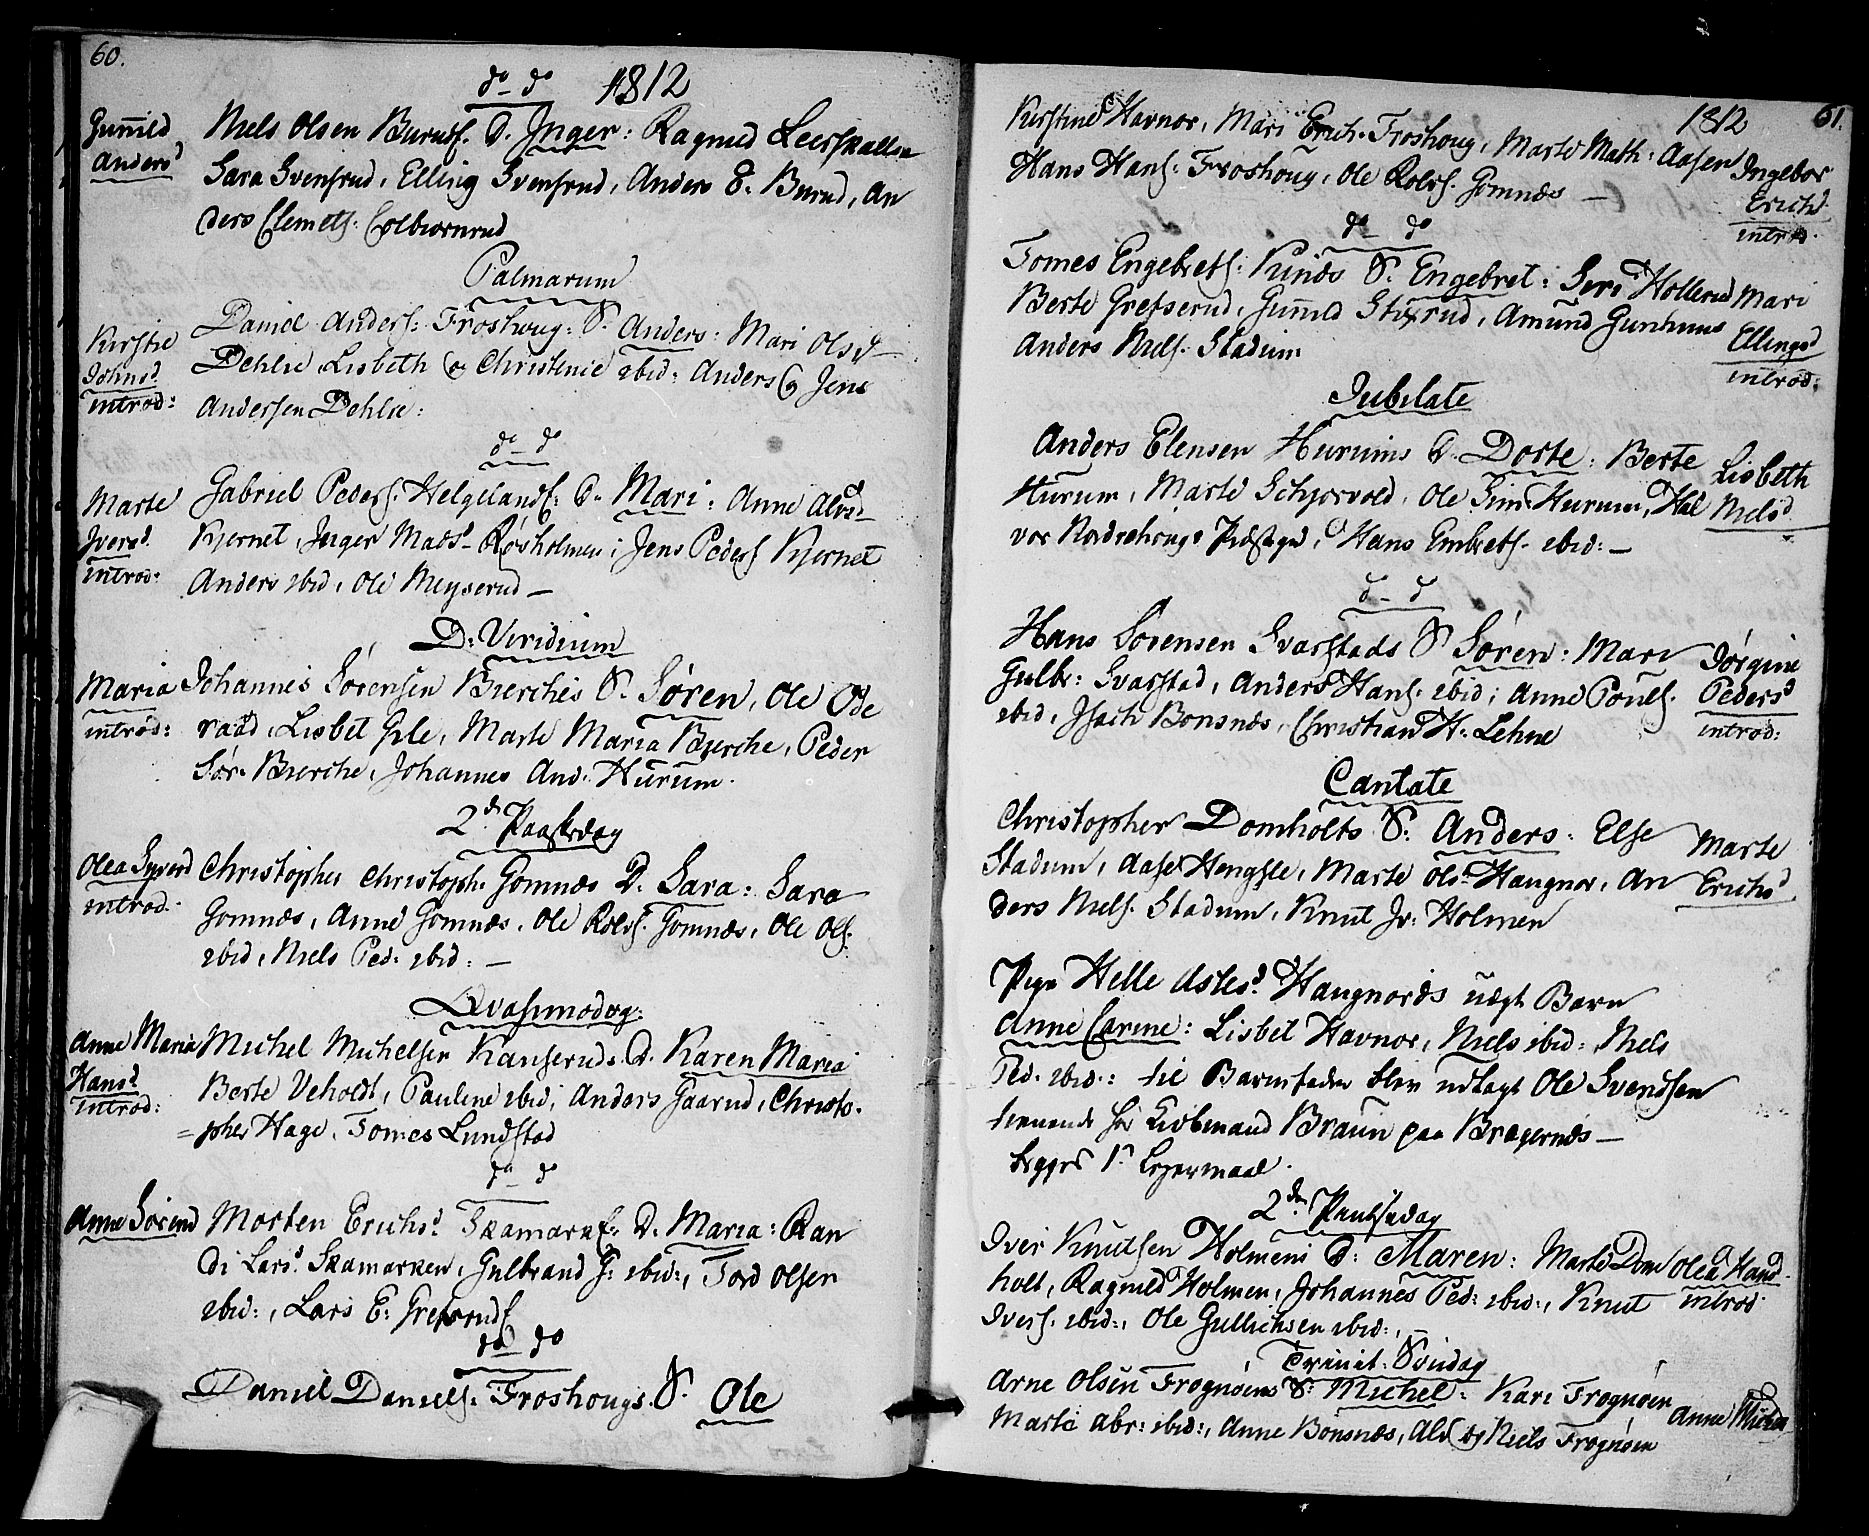 60.
do – do 1812
Gunnild
Andersd
Niels Olsen Buruds. D. Inger: Ragnild Leerskallen
Sara Svensrud, Elling Svensrud, Anders E. Burud, An
ders Clemets. Colbiørnrud
Palmarum
Kirstie
Johnsd
introd:
Daniel Anders: Froshoug: S. Anders: Mari Olsd
Dehlie Lisbeth og Christinie ibid: Anders og Jens
Andersen Dehlie:
do – do
Marte
Iversd
introd:
Gabriel Peders: Helgelands: D. Mari: Anne Alvsd
Kjernet, Inger Madsd Røsholmen; Jens Peders Kjernet
Anders ibid, Ole Meyserud –
D: Viridium
Maria
introd:
Johannes Sørensen Bierches S. Søren, Ole Ode
raad, Lisbet Gile, Marte Maria Bjerche, Peder
Sør. Bierche, Johannes And. Hurum.
2den Paaskedag
Olea Syverd
introd.
Christopher Christoph. Gomnæs D. Sara: Sara
Gomnæs, Anne Gomnæs, Ole Rolvs. Gomnæs, Ole Ols.
ibid, Niels Ped: ibid: –
Qvasimodog:
Anne Maria
Hansd
introd:
Michel Michelsen Kanseruds D. Karen Maria
Berte Veholdt, Pauline ibid; Anders Gaarud, Christo-
=pher Hage, Tomes Lundstad
do do
Anne Sørensd
Morten Erichsd Skamarks: D. Maria: Ran
di Larsd. Skamarken, Gulbrand G: ibid:, Tord Olsen
ibid:, Lars E: Grefsrud
do do
Daniel Daniels: Froshougs S. Ole
1812 61.
Kirstine Havnor, Mari Erich. Froshoug, Marte Math: Aasen
Hans Hans: Froshoug, Ole Rolvs. Gomnæs –
Ingebor
Erichsd
introd.
do do
Tomes Engebrets: Kindes S. Engebret: Siri Hollerud
Berte Grefserud, Gunild Stixrud, Amund Gunhuus
Anders Niels. Stadum
Mari
Ellingsd
introd:
Jubilate
Anders Elensen Hurums D. Dorte: Berte
Hurum, Marte Schjørvold, Ole Sim: Hurum, Hal
vor Nordrehougs Prestegd, Hans Embrets. ibid: –
Lisbeth
Nielsd
d – d
Hans Sørensen Svarstads S. Søren: Mari
Gulbr: Svarstad, Anders Hans. ibid; Anne Pouls.
ibid, Isach Bonsnæs, Christian H. Lehne
Jørgine
Pedersd
introd:
Cantate
Christopher Domholts S. Anders: Else
Stadum, Aase Hengsle, Marte Olsd Haugnor, An
ders Niels. Stadum, Knut Jv: Holmen
Marte
Erichsd
Pige Helle Aslesd. Haugnords uægt Barn
Anne Carine: Lisbet Havnor, Niels ibid: Niels
Ped. ibid: til Barnefader blev udlagt Ole Svendsen
tienende hos Kiøbmand Braun paa Bragernes –
begges 1te Leyermaal.
2den Pintsedag
Iver Knutsen Holmens D: Maren: Marte Dom
holt, Ragnild Holmen, Johannes Ped: ibid:, Knut
Ivers. ibid:, Ole Gullichsen ibid:,
Olea Hansd
introd.
Trinit. Søndag
Arne Olsen Frognøens S: Michel: Kari Frognøen
Marte Abr: ibid:, Anne Bonsnæs, Alf og Niels Frognøen
Anne Michelsd